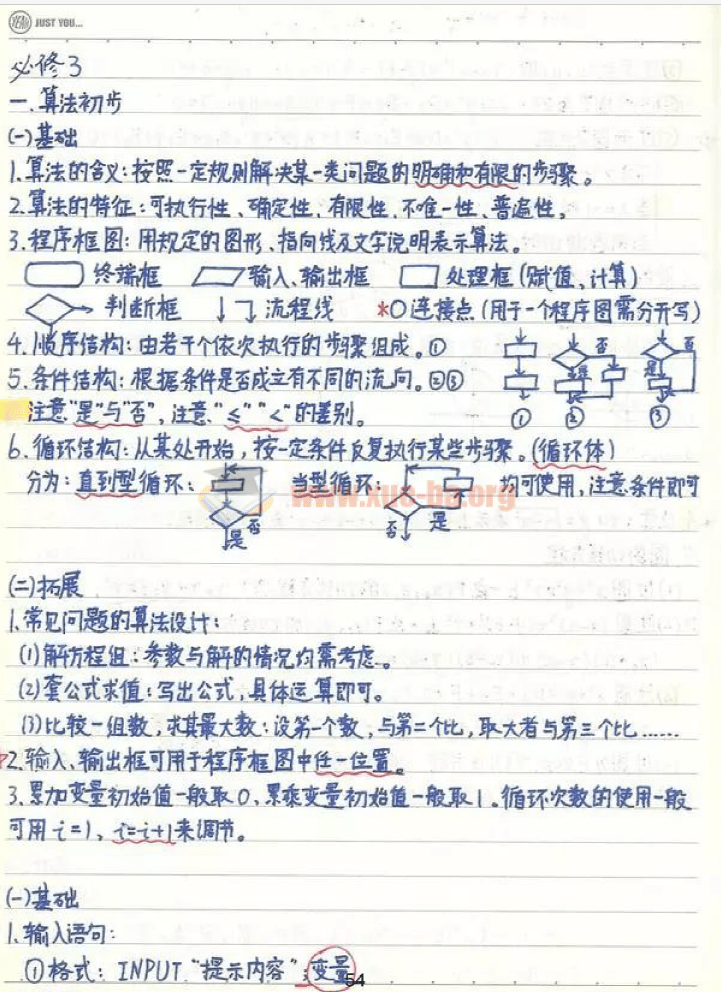 YEAH JUST YOU...
必修3
一、算法初步
(一)基础
1.算法的含义:按照一定规则解决某一类问题的明确和有限的步骤。
2.算法的特征:可执行性、确定性、有限性、不唯一性、普遍性。
3.程序框图:用规定的图形、指向线及文字说明表示算法。
终端框 输入、输出框 处理框(赋值、计算)
判断框 流程线 *○连接点(用于一个程序图需分开写)
4.顺序结构:由若干个依次执行的步骤组成。①
5.条件结构:根据条件是否成立有不同的流向。②③
否 是 否 是
注意"是"与"否",注意"≤""<"的差别。 ① ② ③
6.循环结构:从某处开始,按一定条件反复执行某些步骤。(循环体)
分为:直到型循环: 当型循环: 均可使用,注意条件即可
www.xue-ba.org
否 是 否 是
(二)拓展
1.常见问题的算法设计:
(1)解方程组:参数与解的情况均需考虑。
(2)套公式求值:写出公式,具体运算即可。
(3)比较一组数,求其最大数:设第一个数,与第二个比,取大者与第三个比......
2.输入、输出框可用于程序框图中任一位置。
3.累加变量初始值一般取0,累乘变量初始值一般取1。循环次数的使用一般
可用i=1、i=i+1来调节。
(一)基础
1.输入语句:
①格式:INPUT "提示内容";变量
54